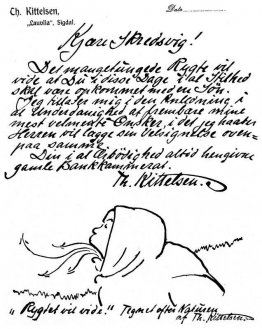 Th. Kittelsen,
"Lauvlia", Sigdal.
Dato
Kjære Skredsvig!
Det mangetungede Rygte vil
vide at Du i disse Dage i al Stilhed
skal være opkommet med en Søn.
Jeg tillater mig i den Anledning i
al Underdanighed at frembære mine
mest velmente Ønsker, i det jeg haaber
Herren vil lægge sin Velsignelse oven-
paa samme.
Din i al Ærbødighed altid hengivne
gamle Bænkkammerat.
Th. Kittelsen.
"Rygtet vil vide." Tegnet efter Naturen
af Th. Kittelsen.